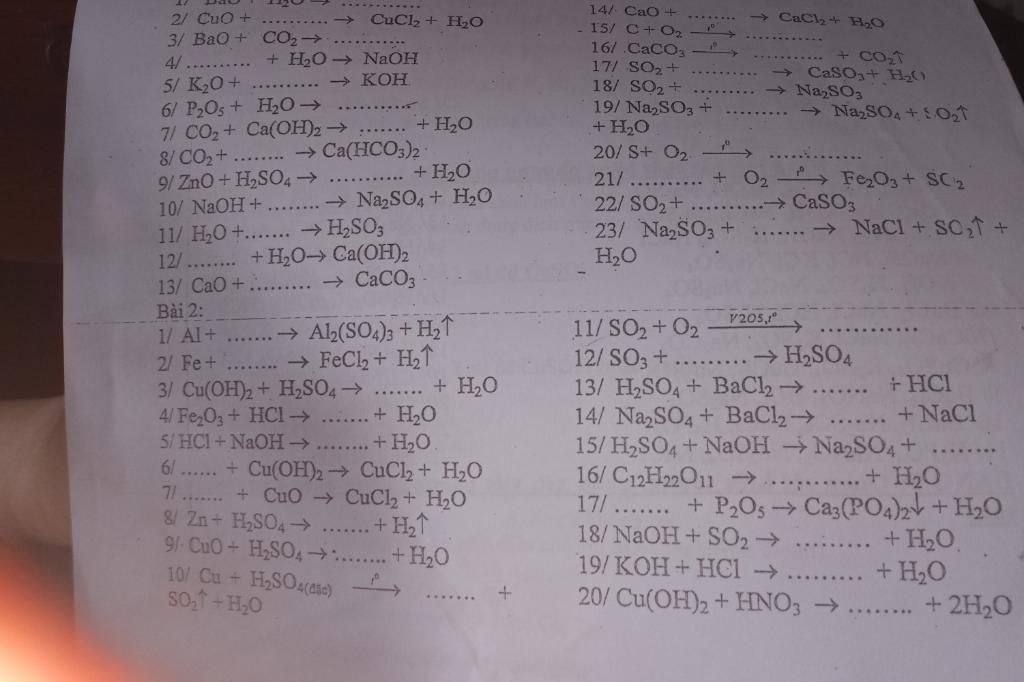 1/ BaO + H₂O → ............
2/ CuO + ............ → CuCl₂ + H₂O
3/ BaO + CO₂ → ............
4/ .......... + H₂O → NaOH
5/ K₂O + .......... → KOH
6/ P₂O₅ + H₂O → ............
7/ CO₂ + Ca(OH)₂ → ....... + H₂O
8/ CO₂ + ........ → Ca(HCO₃)₂
9/ ZnO + H₂SO₄ → ........... + H₂O
10/ NaOH + ........ → Na₂SO₄ + H₂O
11/ H₂O +....... → H₂SO₃
12/ ........ + H₂O → Ca(OH)₂
13/ CaO + .......... → CaCO₃
14/ CaO + ........ → CaCl₂ + H₂O
15/ C + O₂ —t°→ ............
16/ CaCO₃ —t°→ ........... + CO₂↑
17/ SO₂ + .......... → CaSO₃ + H₂O
18/ SO₂ + .......... → Na₂SO₃
19/ Na₂SO₃ + .......... → Na₂SO₄ + SO₂↑
+ H₂O
20/ S+ O₂ —t°→ ..............
21/ ........... + O₂ —t°→ Fe₂O₃ + SO₂
22/ SO₂ + ...........→ CaSO₃
23/ Na₂SO₃ + ........ → NaCl + SO₂↑ +
H₂O
Bài 2:
1/ Al + ....... → Al₂(SO₄)₃ + H₂↑
2/ Fe + ........ → FeCl₂ + H₂↑
3/ Cu(OH)₂ + H₂SO₄ → ....... + H₂O
4/ Fe₂O₃ + HCl → ....... + H₂O
5/ HCl + NaOH → ........ + H₂O
6/ ...... + Cu(OH)₂ → CuCl₂ + H₂O
7/ ....... + CuO → CuCl₂ + H₂O
8/ Zn + H₂SO₄ → ....... + H₂↑
9/ CuO + H₂SO₄ → ........ + H₂O
10/ Cu + H₂SO₄(đặc) —t°→ ....... +
SO₂↑ + H₂O
11/ SO₂ + O₂ —V2O5,t°→ ............
12/ SO₃ + ......... → H₂SO₄
13/ H₂SO₄ + BaCl₂ → ....... + HCl
14/ Na₂SO₄ + BaCl₂ → ....... + NaCl
15/ H₂SO₄ + NaOH → Na₂SO₄ + ........
16/ C₁₂H₂₂O₁₁ → ............ + H₂O
17/ ....... + P₂O₅ → Ca₃(PO₄)₂↓ + H₂O
18/ NaOH + SO₂ → ......... + H₂O
19/ KOH + HCl → ......... + H₂O
20/ Cu(OH)₂ + HNO₃ → ........ + 2H₂O